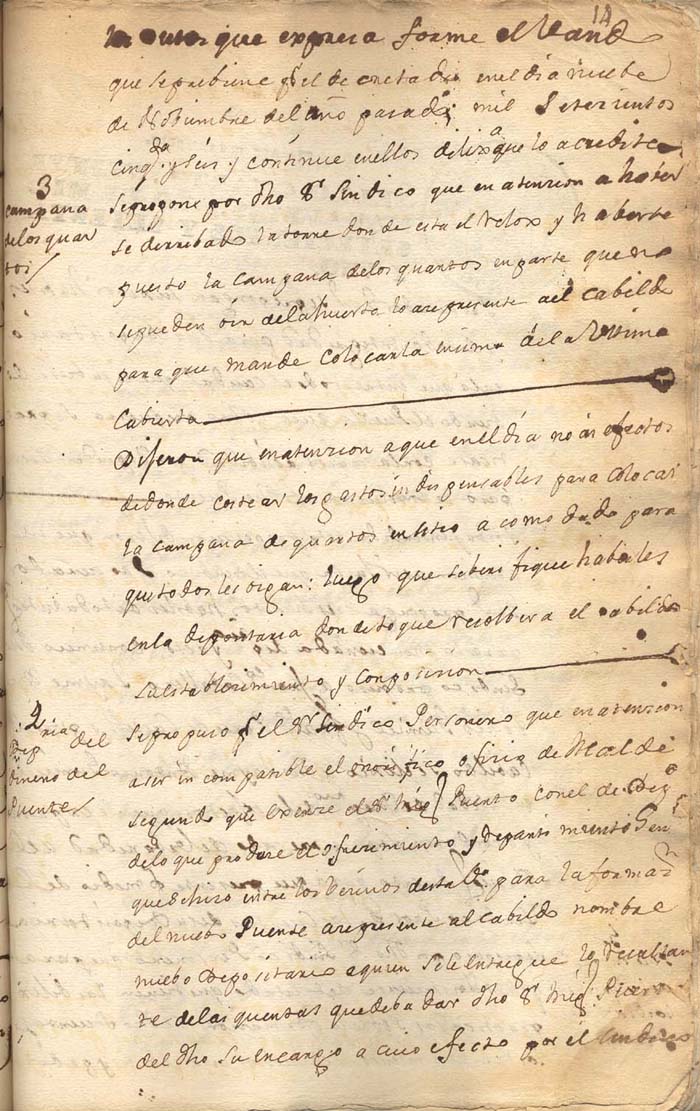 14
que expresa forme el Vando
que se prebiene pr el decretado en el dia nuebe
de Nobiembre del año pasado mil Setezientos
cinqta y seis y continue en ellos dilixa que lo acredite
3
campana
de los quar
tos
Se propone por dho Sr Sindico que en atenzion a haber
se derribado la torre donde esta el Relox y haberse
puesto la campana de los quartos en parte que no
se pueden oir de la huerta lo aze presente a el Cabildo
para que mande colocarla en sima de la Vltima
Cubierta
Dijeron que en atenzion a que en el dia no ai efectos
de donde costear los gastos indispensables para colocar
la campana de quartos en sitio acomodado para
que todos les oigan: luego que se berifique haberles
en la depositaria donde toque resolbera el cabildo
su establecimiento y composision
Depria del
dinero del
Puente
Se propuso pr el Sr Sindico Personero que en atenzion
a ser incompatible el oficio de Alcalde
segundo que exerce el Sr Puerto con el de
de lo que produxe el ofrecimiento y repartimiento
que se hizo entre los Vecinos desta para la
del nuebo Puente aze presente al Cabildo nombre
nuebo Depositario a quien se le entregue lo resultan
te de las quentas que deba dar dho Sr
del dho su encargo a cuio efecto por el